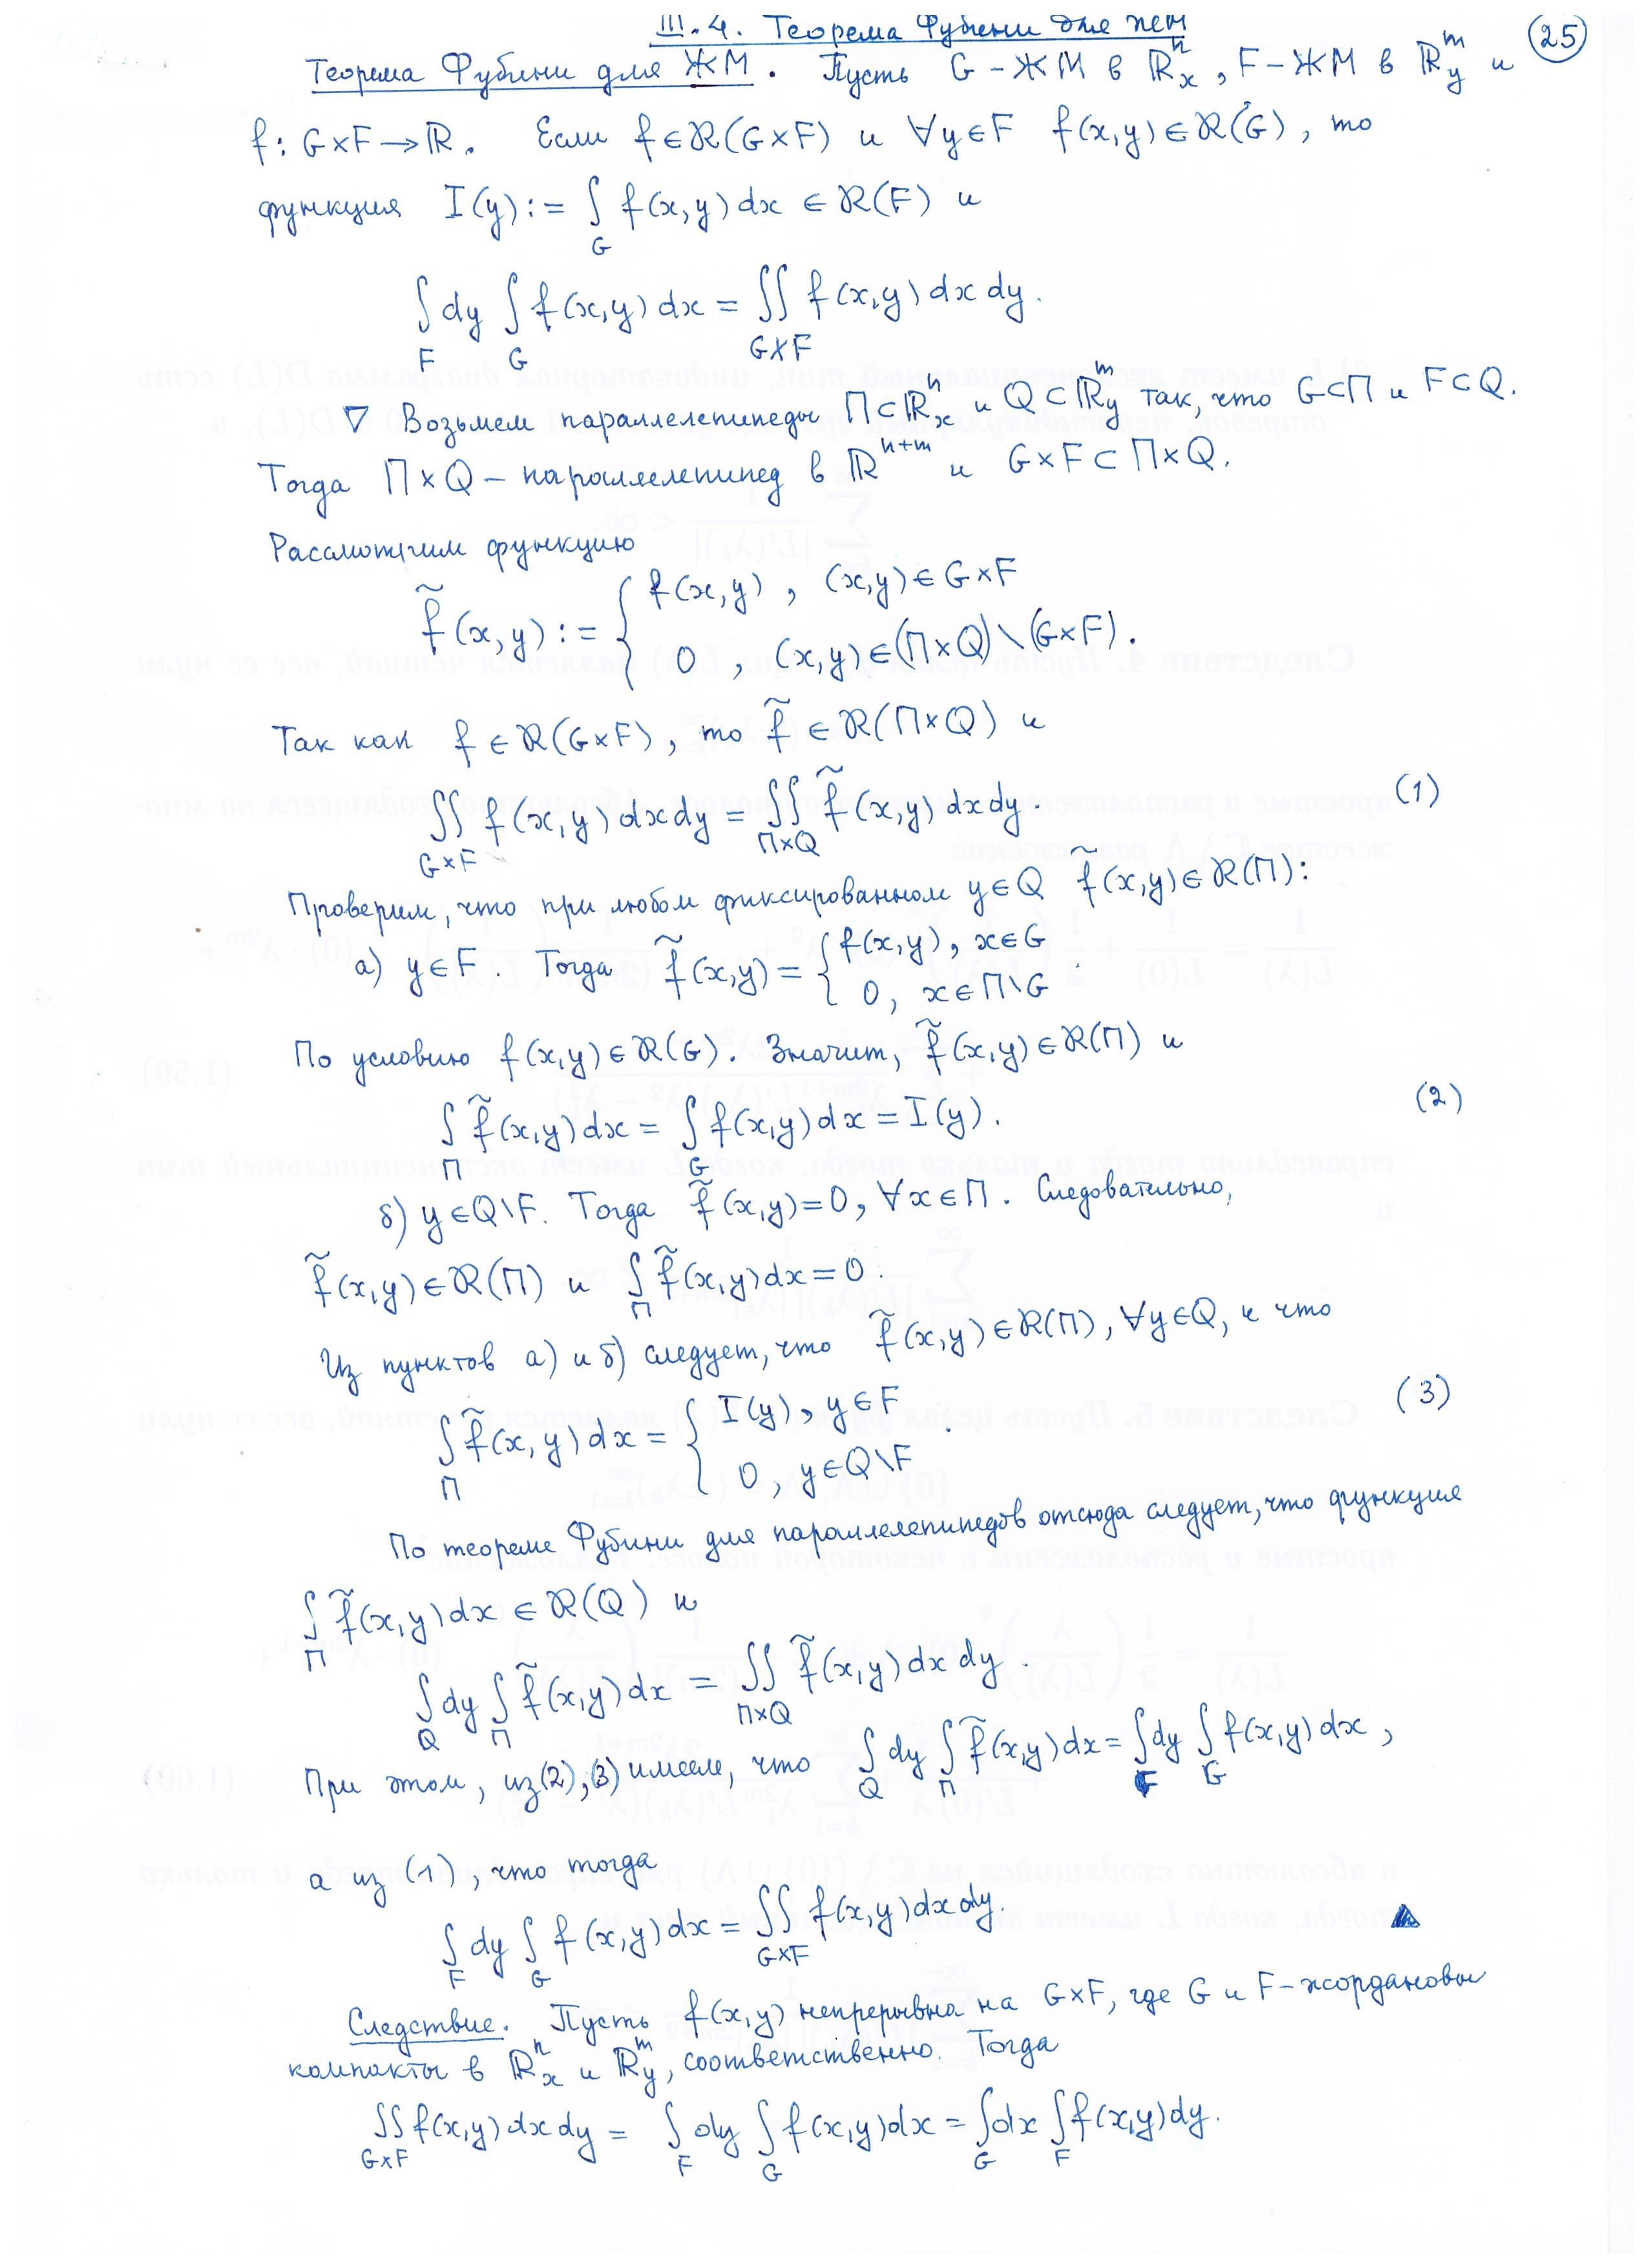 III.4. Теорема Фубини для
25
Теорема Фубини для ЖМ. Пусть G – ЖМ в ℝⁿₓ, F – ЖМ в ℝᵐ_y и
f: G×F→ℝ. Если f∈ℛ(G×F) и ∀y∈F f(x,y)∈ℛ(G), то
функция I(y):= ∫_G f(x,y)dx ∈ ℛ(F) и
∫_F dy ∫_G f(x,y)dx = ∬_{G×F} f(x,y)dxdy.
∇ Возьмем параллелепипеды Π⊂ℝⁿₓ и Q⊂ℝᵐ_y так, что G⊂Π и F⊂Q.
Тогда Π×Q – параллелепипед в ℝⁿ⁺ᵐ и G×F⊂Π×Q.
Рассмотрим функцию
f̃(x,y):= { f(x,y), (x,y)∈G×F
0, (x,y)∈(Π×Q)\(G×F).
Так как f∈ℛ(G×F), то f̃∈ℛ(Π×Q) и
∬_{G×F} f(x,y)dxdy = ∬_{Π×Q} f̃(x,y)dxdy (1)
Проверим, что при любом фиксированном y∈Q f̃(x,y)∈ℛ(Π):
а) y∈F. Тогда f̃(x,y) = { f(x,y), x∈G
0, x∈Π\G.
По условию f(x,y)∈ℛ(G). Значит, f̃(x,y)∈ℛ(Π) и
∫_Π f̃(x,y)dx = ∫_G f(x,y)dx = I(y). (2)
б) y∈Q\F. Тогда f̃(x,y)=0, ∀x∈Π. Следовательно,
f̃(x,y)∈ℛ(Π) и ∫_Π f̃(x,y)dx=0.
Из пунктов а) и б) следует, что f̃(x,y)∈ℛ(Π), ∀y∈Q, и что
∫_Π f̃(x,y)dx = { I(y), y∈F (3)
0, y∈Q\F.
По теореме Фубини для параллелепипедов отсюда следует, что функция
∫_Π f̃(x,y)dx ∈ ℛ(Q) и
∫_Q dy ∫_Π f̃(x,y)dx = ∬_{Π×Q} f̃(x,y)dxdy.
При этом, из (2),(3) имеем, что ∫_Q dy ∫_Π f̃(x,y)dx = ∫_F dy ∫_G f(x,y)dx,
а из (1), что тогда
∫_F dy ∫_G f(x,y)dx = ∬_{G×F} f(x,y)dxdy. ▲
Следствие. Пусть f(x,y) непрерывна на G×F, где G и F – жордановы
компакты в ℝⁿₓ и ℝᵐ_y, соответственно. Тогда
∬_{G×F} f(x,y)dxdy = ∫_F dy ∫_G f(x,y)dx = ∫_G dx ∫_F f(x,y)dy.